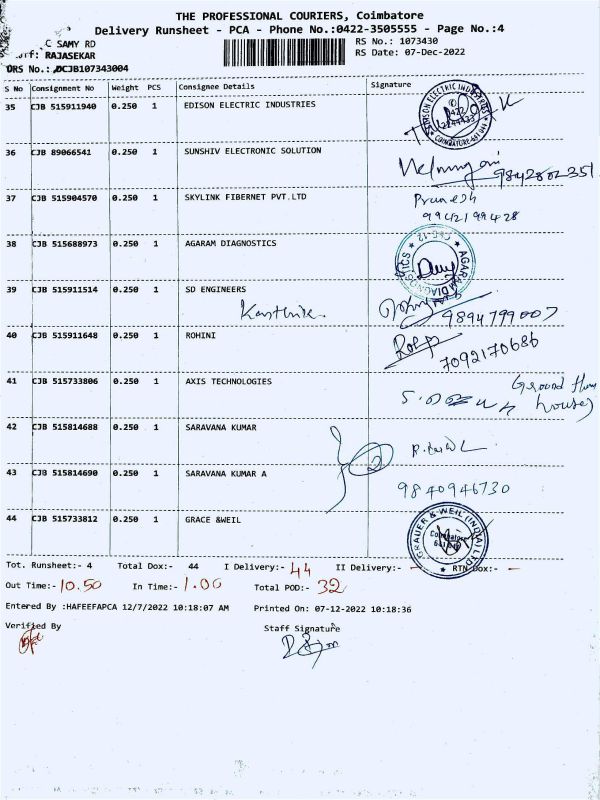 THE PROFESSIONAL COURIERS, Coimbatore
Delivery Runsheet - PCA - Phone No.:0422-3505555 - Page No.:4
C SAMY RD
RS No.: 1073430
ff: RAJASEKAR
RS Date: 07-Dec-2022
DRS No.: DCJB107343004
S No Consignment No Weight PCS Consignee Details Signature
35 CJB 515911940 0.250 1 EDISON ELECTRIC INDUSTRIES
EDISON ELECTRIC INDUSTRIES
36 CJB 89066541 0.250 1 SUNSHIV ELECTRONIC SOLUTION
9842802351
37 CJB 515904570 0.250 1 SKYLINK FIBERNET PVT.LTD
9942199428
38 CJB 515688973 0.250 1 AGARAM DIAGNOSTICS
AGARAM DIAGNOSTICS
39 CJB 515911514 0.250 1 SD ENGINEERS
9894799007
40 CJB 515911648 0.250 1 ROHINI
7092170686
41 CJB 515733806 0.250 1 AXIS TECHNOLOGIES
Ground
42 CJB 515814688 0.250 1 SARAVANA KUMAR
43 CJB 515814690 0.250 1 SARAVANA KUMAR A
9840946730
44 CJB 515733812 0.250 1 GRACE &WEIL
GRAUER & WEIL (INDIA) LTD
Coimbatore
Tot. Runsheet:- 4 Total Dox:- 44 I Delivery:- 44 II Delivery:- - RTN Dox:- -
Out Time:- 10.50 In Time:- 1.00 Total POD:- 32
Entered By :HAFEEFAPCA 12/7/2022 10:18:07 AM Printed On: 07-12-2022 10:18:36
Verified By Staff Signature